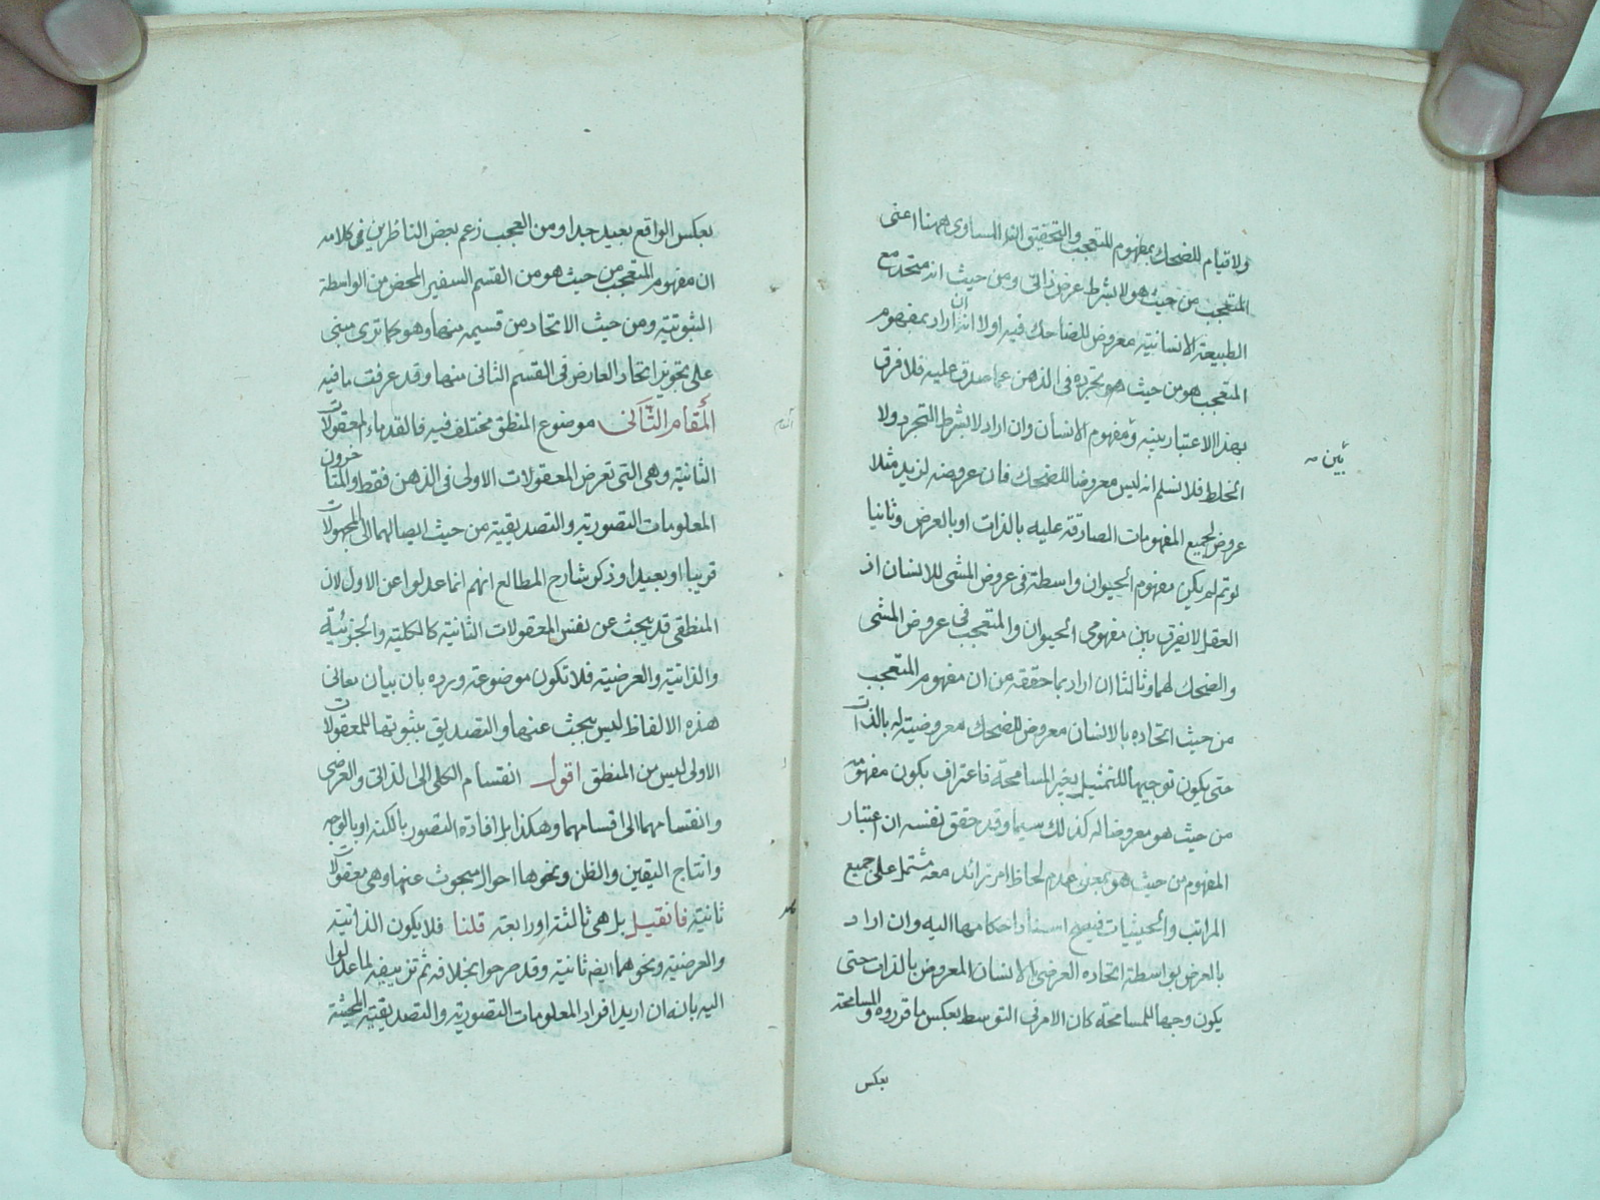 ولا قيام للضحك بمفهوم المتعجب والتحقيق ان المساوى ههنا اعنى
المتعجب من حيث هو لا بشرط عرض ذاتى ومن حيث انه متحد مع
الطبيعة الانسانية معروض للضاحك فيه اولا انه ان اراد بمفهوم
المتعجب هو من حيث هو تجرده فى الذهن عما صدق عليه فلا فرق
بهذا الاعتبار بينه ومفهوم الانسان وان اراد لا بشرط التجرد ولا
بين صح
الخلط فلا نسلم انه ليس معروضا للضحك فان عروضه لزيد مثلا
عروض لجميع المفهومات الصادقة عليه بالذات او بالعرض وثانيا
لو تم لم يكن مفهوم الحيوان واسطة فى عروض المشى للانسان اذ
العقل لا يفرق بين مفهومى الحيوان والمتعجب فى عروض المشى
والضحك لهما وثالثا ان اراد بما حققه من ان مفهوم المتعجب
من حيث اتحاده بالانسان معروض للضحك معروضيته له بالذات
حتى يكون توجيها للتمثيل بغير المسامحة فاعتراف بكون مفهومه
من حيث هو معروضا له كذلك سيما وقد حقق نفسه ان اعتبار
المفهوم من حيث هو بمعنى عدم لحاظ امر زائد معه مشتمل على جميع
المراتب والحيثيات فيصح اسناد احكامها اليه وان اراد
بالعرض بواسطة اتحاده العرضى بالانسان المعروض بالذات حتى
يكون وجها للمسامحة كان الامر فى التوسط بعكس ما قرروه والمسامحة
بعكس
بعكس الواقع بعيد جدا ومن العجب زعم بعض الناظرين فى كلامه
ان مفهوم المتعجب من حيث هو من القسم السفير المحض من الواسطة
الثبوتية ومن حيث الاتحاد من قسيمه منها وهو كما ترى مبنى
على تجويز اتحاد العارض فى القسم الثانى منها وقد عرفت ما فيه
المقام الثانى موضوع المنطق مختلف فيه فالقدماء المعقولات
الثانية وهى التى تعرض المعقولات الاولى فى الذهن فقط والمتاخرون
المعلومات التصورية والتصديقية من حيث ايصالهما الى المجهولات
قريبا او بعيدا وذكر شارح المطالع انهم انما عدلوا عن الاول لان
المنطقى قد يبحث عن نفس المعقولات الثانية كالكلية والجزئية
والذاتية والعرضية فلا تكون موضوعة ورده بان بيان معانى
هذه الالفاظ ليس يبحث عنها والتصديق بثبوتها للمعقولات
الاولى ليس من المنطق اقول انقسام الكلى الى الذاتى والعرضى
وانقسامهما الى اقسامهما وهكذا بل افادة التصور بالكنه او بالوجه
وانتاج اليقين والظن ونحوها احوال مبحوث عنها وهى معقولات
ثانية فان قيل بل هى ثالثة او رابعة قلنا فلا يكون الذاتية
والعرضية ونحوهما ايضا ثانية وقد صرحوا بخلافه ثم تزييفه لما عدلوا
اليه بانه ان اريد افراد المعلومات التصورية والتصديقية المحيثة